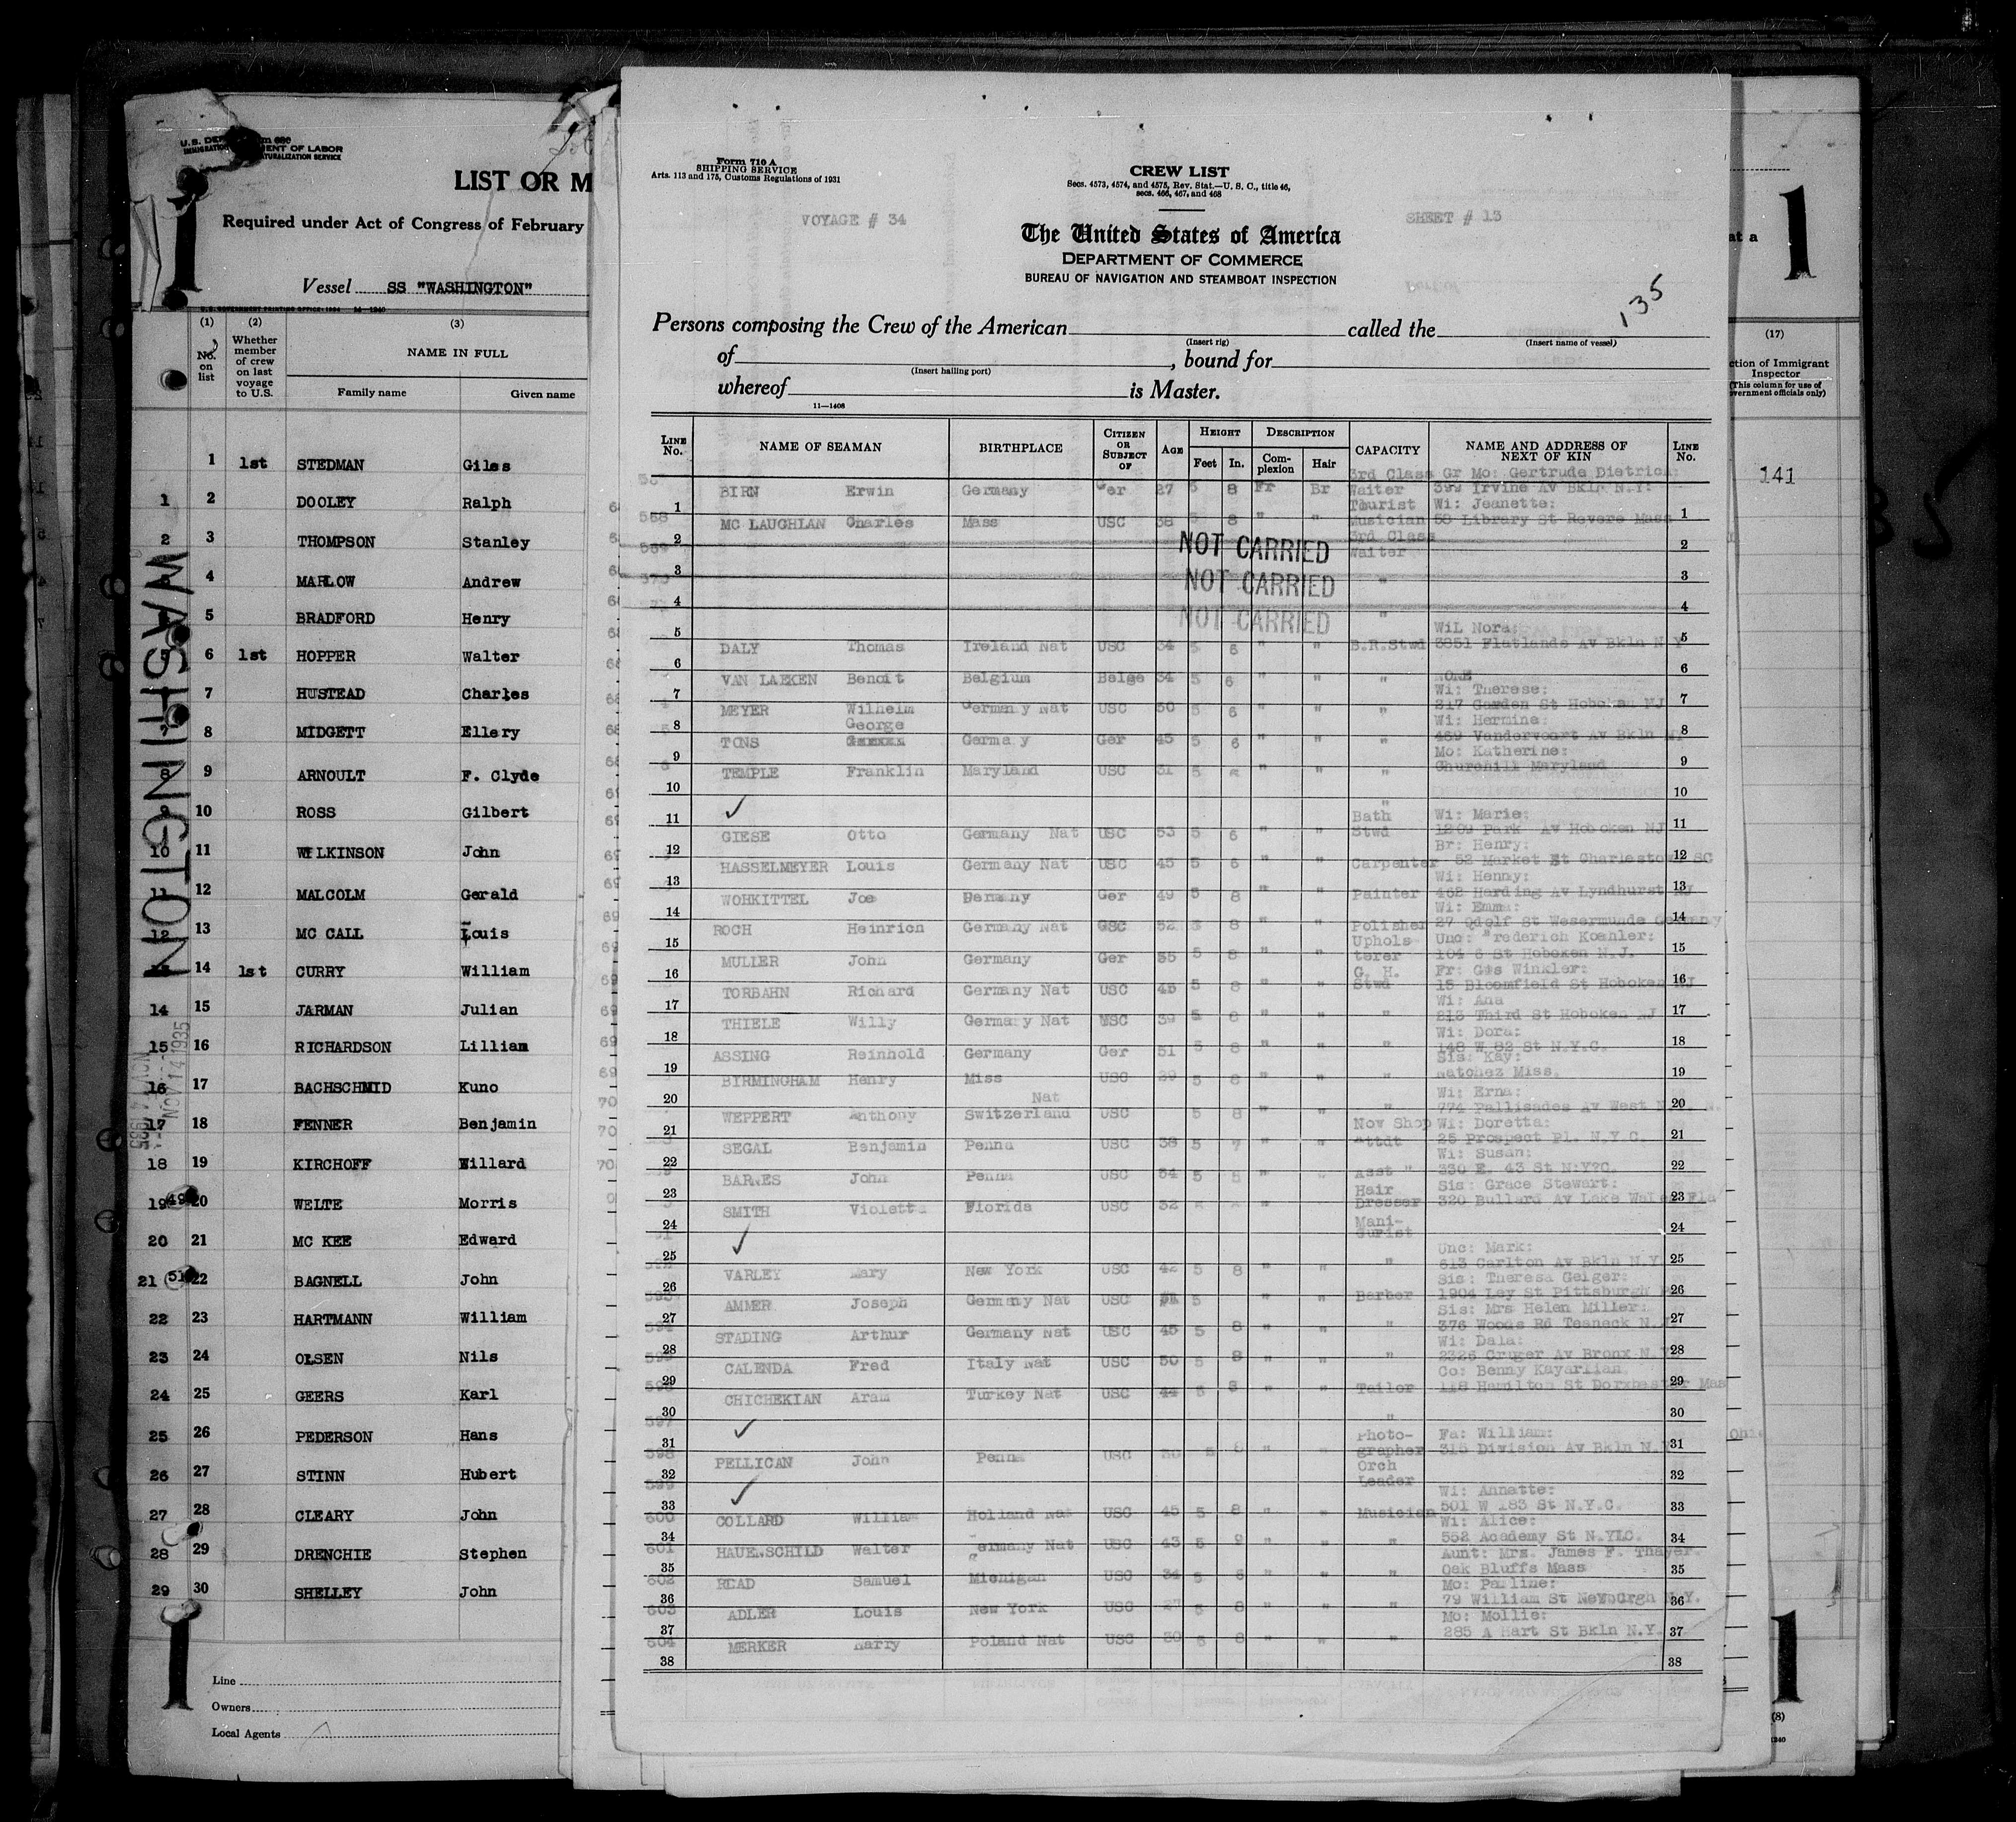 U.S. DEPARTMENT OF LABOR
LIST OR M
Required under Act of Congress of February
Vessel SS "WASHINGTON"
(1) (2) (3)
No. on list
Whether member of crew on last voyage to U.S.
NAME IN FULL
Family name Given name
1 1st STEDMAN Giles
1 2 DOOLEY Ralph
2 3 THOMPSON Stanley
4 MARLOW Andrew
5 BRADFORD Henry
6 1st HOPPER Walter
7 HUSTEAD Charles
8 MIDGETT Ellery
8 9 ARNOULT F. Clyde
9 10 ROSS Gilbert
10 11 WILKINSON John
11 12 MALCOLM Gerald
12 13 MC CALL Louis
14 1st CURRY William
14 15 JARMAN Julian
15 16 RICHARDSON Lilliam
16 17 BACHSCHMID Kuno
17 18 FENNER Benjamin
18 19 KIRCHOFF Willard
19 20 WELTE Morris
20 21 MC KEE Edward
21 22 BAGNELL John
22 23 HARTMANN William
23 24 OLSEN Nils
24 25 GEERS Karl
25 26 PEDERSON Hans
26 27 STINN Hubert
27 28 CLEARY John
28 29 DRENCHIE Stephen
29 30 SHELLEY John
Line
Owners
Local Agents
WASHINGTON
NOV 14 1935
Form 710 A
SHIPPING SERVICE
Arts. 113 and 175, Customs Regulations of 1931
CREW LIST
Secs. 4573, 4574, and 4575, Rev. Stat.—U. S. C., title 46,
secs. 466, 467, and 468
VOYAGE # 34
SHEET # 13
The United States of America
DEPARTMENT OF COMMERCE
BUREAU OF NAVIGATION AND STEAMBOAT INSPECTION
135
Persons composing the Crew of the American called the
(Insert rig) (Insert name of vessel)
of , bound for
(Insert hailing port)
whereof is Master.
11—1408
LINE No. NAME OF SEAMAN BIRTHPLACE CITIZEN OR SUBJECT OF AGE HEIGHT Feet In. DESCRIPTION Complexion Hair CAPACITY NAME AND ADDRESS OF NEXT OF KIN LINE No.
3rd Class Gr Mo: Gertrude Dietrich
BIRN Erwin Germany Ger 27 5 8 Fr Br Waiter Irvine Av Bkln N.Y:
1 Tourist Wi: Jeanette: 1
MC LAUGHLAN Charles Mass USC 38 5 8 " " Musician 58 Library St Revere Mass
2 NOT CARRIED 3rd Class Waiter 2
3 NOT CARRIED " 3
4 NOT CARRIED " 4
5 WiL Nora: 5
DALY Thomas Ireland Nat USC 34 5 6 " " B.R.Stwd 3351 Flatlands Av Bkln N Y
6 6
VAN LAEKEN Benoit Belgium Belge 34 5 6 " " " NONE
7 Wi: Therese: 7
MEYER Wilhelm Germany Nat USC 50 5 6 " " " 317 Garden St Hoboken NJ
8 George Wi: Hermine: 8
TONS Germa y Ger 45 5 6 " " " 469 Vandervoort Av Bkln NY
9 Mo: Katherine: 9
TEMPLE Franklin Maryland USC 31 5 " " " Churchill Maryland
10 10
11 Bath Wi: Marie: 11
GIESE Otto Germany Nat USC 53 5 6 " " Stwd 1209 Park Av Hoboken NJ
12 Br: Henry: 12
HASSELMEYER Louis Germany Nat USC 45 5 6 " " Carpenter 52 Market St Charlestown SC
13 Wi: Henny: 13
WOHKITTEL Joe Germany Ger 49 5 8 " " Painter 462 Harding Av Lyndhurst NJ
14 Wi: Emma: 14
ROCH Heinrich Germany Nat USC 52 5 8 " " Polisher 27 St Wesermunde Germany
15 Uphols Unc: Frederich Koehler: 15
MULLER John Germany Ger 35 5 8 " " terer 104 6 St Hoboken N.J.
16 G. H. Fr: Gus Winkler: 16
TORBAHN Richard Germany Nat USC 45 5 8 " " Stwd 15 Bloomfield St Hoboken NJ
17 Wi: Ana 17
THIELE Willy Germany Nat USC 39 5 8 " " " 213 Third St Hoboken NJ
18 Wi: Dora: 18
ASSING Reinhold Germany Ger 51 5 8 " " " 148 W 82 St N.Y.C.
19 Sis: Kay: 19
BIRMINGHAM Henry Miss USC 29 5 8 " " " Natchez Miss.
20 Nat Wi: Erna: 20
WEPPERT Anthony Switzerland USC 5 8 " " " 774 Pallisades Av West N.
21 Nov Shop Wi: Doretta: 21
SEGAL Benjamin Penna USC 38 5 7 " " Attdt 25 Prospect Pl. N.Y.C.
22 Wi: Susan: 22
BARNES John Penna USC 54 5 8 " " Asst " 330 E. 43 St N:Y?C.
23 Hair Sis: Grace Stewart: 23
SMITH Violetta Florida USC 32 " Dresser 320 Bullard Av Lake Wales Fla
24 Manicurist 24
25 Unc: Mark: 25
VARLEY Mary New York USC 42 5 8 " " " 613 Carlton Av Bkln N.Y
26 Sis: Theresa Geiger: 26
AMMER Joseph Germany Nat USC 5 " " Barber 1904 Ley St Pittsburgh
27 Sis: Mrs Helen Miller: 27
STADING Arthur Germany Nat USC 45 5 8 " " " 376 Woods Rd Teaneck N.
28 Wi: Dala: 28
CALENDA Fred Italy Nat USC 50 5 8 " " " 2326 Cruger Av Bronx N.Y
29 Co: Benny Kayarlian 29
CHICHEKIAN Aram Turkey Nat USC 44 5 8 " " Tailor 118 Hamilton St Dorxhester Mas
30 " 30
31 Photo- Fa: William: 31
PELLICAN John Penna USC 30 5 8 " " grapher 315 Division Av Bkln N.Y
32 Orch Leader 32
33 Wi: Annette: 33
600 COLLARD William Holland Nat USC 45 5 8 " " Musician 501 W 183 St N.Y.C.
34 Wi: Alice: 34
601 HAUENSCHILD Walter Germany Nat USC 43 5 9 " " " 552 Academy St N.YLC.
35 Aunt: Mrs. James F. Thayer. 35
602 READ Samuel Michigan USC 34 5 6 " " " Oak Bluffs Mass
36 Mo: Pauline: 36
603 ADLER Louis New York USC 27 5 8 " " " 79 William St Newburgh N.Y.
37 Mo: Mollie: 37
604 MERKER Harry Poland Nat USC 30 5 8 " " " 285 A Hart St Bkln N.Y.
38 38
at a
1
(17)
ction of Immigrant
Inspector
(This column for use of
vernment officials only)
141